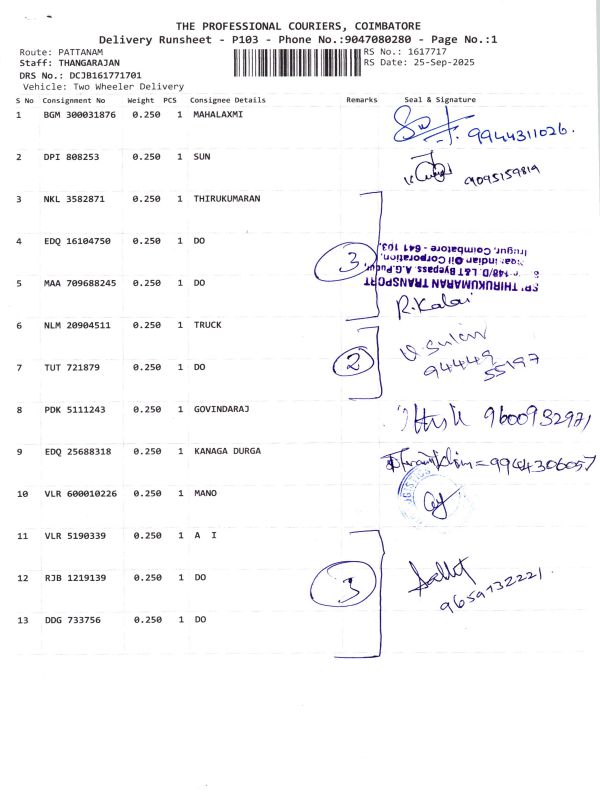 THE PROFESSIONAL COURIERS, COIMBATORE
Delivery Runsheet - P103 - Phone No.:9047080280 - Page No.:1
Route: PATTANAM RS No.: 1617717
Staff: THANGARAJAN RS Date: 25-Sep-2025
DRS No.: DCJB161771701
Vehicle: Two Wheeler Delivery
S No Consignment No Weight PCS Consignee Details Remarks Seal & Signature
1 BGM 300031876 0.250 1 MAHALAXMI 9944311026.
2 DPI 808253 0.250 1 SUN 9095159819
3 NKL 3582871 0.250 1 THIRUKUMARAN
4 EDQ 16104750 0.250 1 DO 3
5 MAA 709688245 0.250 1 DO
THIRUKUMARAN TRANSPORT
148/D, L&T Byepass, A.G.Pudur,
Indian Oil Corporation,
Irugur, Coimbatore - 641 103.
R.Kalai
6 NLM 20904511 0.250 1 TRUCK
7 TUT 721879 0.250 1 DO 2 94449
55197
8 PDK 5111243 0.250 1 GOVINDARAJ 9600932971
9 EDQ 25688318 0.250 1 KANAGA DURGA = 9944306057
10 VLR 600010226 0.250 1 MANO
11 VLR 5190339 0.250 1 A I
12 RJB 1219139 0.250 1 DO 3
9659732221
13 DDG 733756 0.250 1 DO